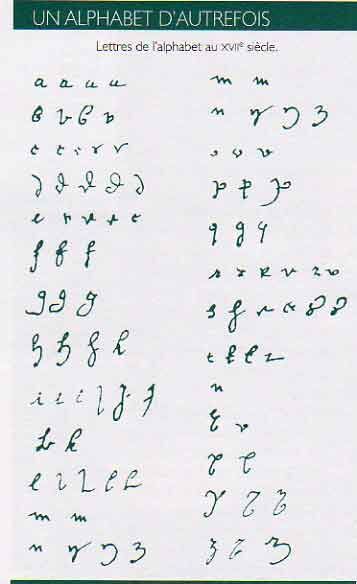 UN ALPHABET D'AUTREFOIS
Lettres de l'alphabet au XVIIe siècle.
a a a a
b b b b
c c c c c
d d d d d
e e e e e
f f f
g g g
h h h h
i i i j j j
k k
l l l l l
m m
n n n n
m m
n n n n
o o o
p p p
q q q
r r r r r r
s s s s s s
t t t t
u
v v
x x
y y y
z z z